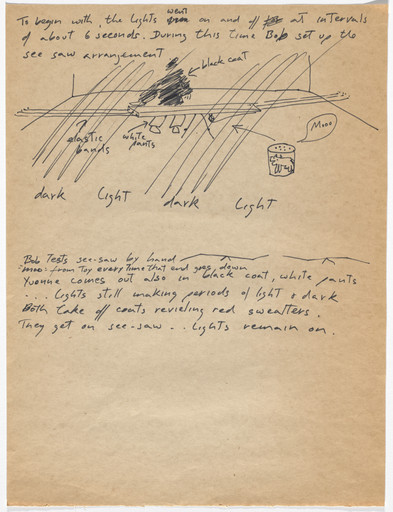 To begin with, the lights went on and off at intervals
of about 6 seconds. During this time Bob set up the
see saw arrangement
black coat
Mooo
elastic
bands
white
pants
dark light dark light
Bob Tests see-saw by hand
moo from Toy every time that end goes down
Yvonne comes out also in black coat, white pants
... lights still making periods of light & dark
Both take off coats revieling red sweatters.
They get on see-saw .. lights remain on.